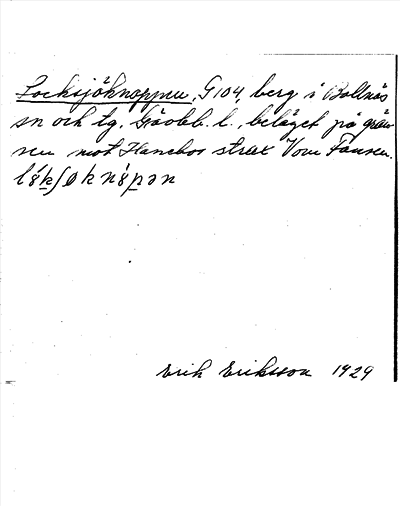 Locksjöknoppen, G104, berg i Bollnäs
sn och tg. Gävlb. l., beläget på grän-
sen mot Hanebo strax V om Fansen.
Erik Eriksson 1929